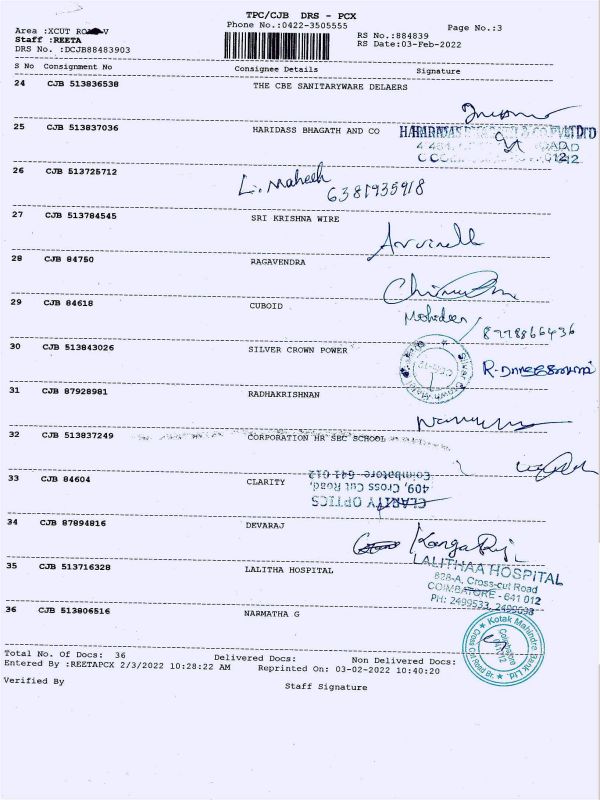 TPC/CJB DRS - PCX
Phone No.:0422-3505555
Page No.:3
Area :XCUT
Staff :REETA
DRS No. :DCJB88483903
RS No.:884839
RS Date:03-Feb-2022
S No Consignment No Consignee Details Signature
24 CJB 513836538 THE CBE SANITARYWARE DELAERS
25 CJB 513837036 HARIDASS BHAGATH AND CO
26 CJB 513725712
L. Mahesh
6381935918
27 CJB 513784545 SRI KRISHNA WIRE
28 CJB 84750 RAGAVENDRA
29 CJB 84618 CUBOID
Mohideen
8778866436
30 CJB 513843026 SILVER CROWN POWER
31 CJB 87928981 RADHAKRISHNAN
32 CJB 513837249 CORPORATION HR SEC SCHOOL
33 CJB 84604 CLARITY
CLARITY OPTICS
409, Cross Cut Road,
Coimbatore - 641 012
34 CJB 87894816 DEVARAJ
35 CJB 513716328 LALITHA HOSPITAL
LALITHAA HOSPITAL
828-A, Cross-cut Road
COIMBATORE - 641 012
PH: 2499533, 2499633
36 CJB 513806516 NARMATHA G
Kotak Mahindra Bank Ltd.
Coimbatore
Total No. Of Docs: 36 Delivered Docs: Non Delivered Docs:
Entered By :REETAPCX 2/3/2022 10:28:22 AM Reprinted On: 03-02-2022 10:40:20
Verified By Staff Signature